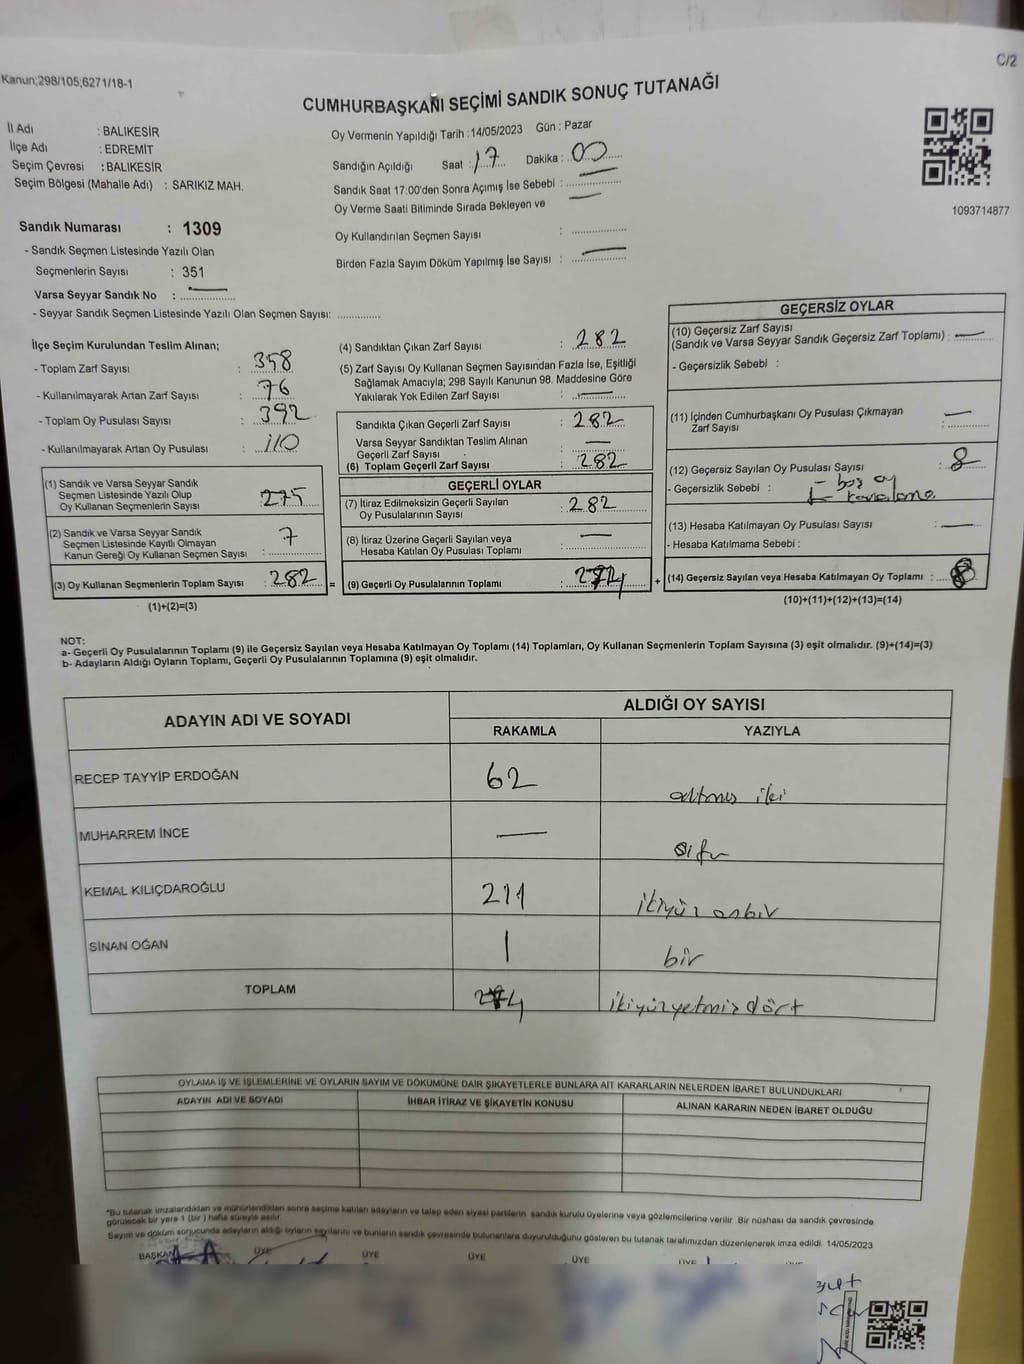 C/2
Kanun;298/105;6271/18-1
CUMHURBAŞKANI SEÇİMİ SANDIK SONUÇ TUTANAĞI
İl Adı : BALIKESİR
İlçe Adı : EDREMİT
Seçim Çevresi : BALIKESİR
Seçim Bölgesi (Mahalle Adı) : SARIKIZ MAH.
Oy Vermenin Yapıldığı Tarih :14/05/2023 Gün : Pazar
Sandığın Açıldığı Saat : 17 Dakika : 00
Sandık Saat 17:00'den Sonra Açımış İse Sebebi : —
Oy Verme Saati Bitiminde Sırada Bekleyen ve
Oy Kullandırılan Seçmen Sayısı : —
Birden Fazla Sayım Döküm Yapılmış İse Sayısı : —
1093714877
Sandık Numarası : 1309
- Sandık Seçmen Listesinde Yazılı Olan
Seçmenlerin Sayısı : 351
Varsa Seyyar Sandık No : —
- Seyyar Sandık Seçmen Listesinde Yazılı Olan Seçmen Sayısı:
İlçe Seçim Kurulundan Teslim Alınan;
- Toplam Zarf Sayısı : 358
- Kullanılmayarak Artan Zarf Sayısı : 76
- Toplam Oy Pusulası Sayısı : 392
- Kullanılmayarak Artan Oy Pusulası : 110
(1) Sandık ve Varsa Seyyar Sandık
Seçmen Listesinde Yazılı Olup
Oy Kullanan Seçmenlerin Sayısı : 275
(2) Sandık ve Varsa Seyyar Sandık
Seçmen Listesinde Kayıtlı Olmayan
Kanun Gereği Oy Kullanan Seçmen Sayısı : 7
(3) Oy Kullanan Seçmenlerin Toplam Sayısı : 282
(1)+(2)=(3)
(4) Sandıktan Çıkan Zarf Sayısı : 282
(5) Zarf Sayısı Oy Kullanan Seçmen Sayısından Fazla İse, Eşitliği
Sağlamak Amacıyla; 298 Sayılı Kanunun 98. Maddesine Göre
Yakılarak Yok Edilen Zarf Sayısı : —
Sandıkta Çıkan Geçerli Zarf Sayısı : 282
Varsa Seyyar Sandıktan Teslim Alınan
Geçerli Zarf Sayısı : —
(6) Toplam Geçerli Zarf Sayısı : 282
GEÇERLİ OYLAR
(7) İtiraz Edilmeksizin Geçerli Sayılan
Oy Pusulalarının Sayısı : 282
(8) İtiraz Üzerine Geçerli Sayılan veya
Hesaba Katılan Oy Pusulası Toplamı : —
= (9) Geçerli Oy Pusulalarının Toplamı : 274
GEÇERSİZ OYLAR
(10) Geçersiz Zarf Sayısı
(Sandık ve Varsa Seyyar Sandık Geçersiz Zarf Toplamı) : —
- Geçersizlik Sebebi :
(11) İçinden Cumhurbaşkanı Oy Pusulası Çıkmayan
Zarf Sayısı : —
(12) Geçersiz Sayılan Oy Pusulası Sayısı : 8
- Geçersizlik Sebebi : - boş oy
- karalama.
(13) Hesaba Katılmayan Oy Pusulası Sayısı : —
- Hesaba Katılmama Sebebi :
+ (14) Geçersiz Sayılan veya Hesaba Katılmayan Oy Toplamı : 8
(10)+(11)+(12)+(13)=(14)
NOT:
a- Geçerli Oy Pusulalarının Toplamı (9) ile Geçersiz Sayılan veya Hesaba Katılmayan Oy Toplamı (14) Toplamları, Oy Kullanan Seçmenlerin Toplam Sayısına (3) eşit olmalıdır. (9)+(14)=(3)
b- Adayların Aldığı Oyların Toplamı, Geçerli Oy Pusulalarının Toplamına (9) eşit olmalıdır.
ADAYIN ADI VE SOYADI
ALDIĞI OY SAYISI
RAKAMLA YAZIYLA
RECEP TAYYİP ERDOĞAN 62 altmış iki
MUHARREM İNCE — sıfır
KEMAL KILIÇDAROĞLU 211 ikiyüz onbir
SİNAN OĞAN 1 bir
TOPLAM 274 ikiyüzyetmiş dört
OYLAMA İŞ VE İŞLEMLERİNE VE OYLARIN SAYIM VE DÖKÜMÜNE DAİR ŞİKAYETLERLE BUNLARA AİT KARARLARIN NELERDEN İBARET BULUNDUKLARI
ADAYIN ADI VE SOYADI İHBAR İTİRAZ VE ŞİKAYETİN KONUSU ALINAN KARARIN NEDEN İBARET OLDUĞU
*Bu tutanak imzalandıktan ve mühürlendikten sonra seçime katılan adayların ve talep eden siyasi partilerin sandık kurulu üyelerine veya gözlemcilerine verilir. Bir nüshası da sandık çevresinde
görülecek bir yere 1 (bir) hafta süreyle asılır.
Sayım ve döküm sonucunda adayların aldığı oyların sayılarını ve bunların sandık çevresinde bulunanlara duyurulduğunu gösteren bu tutanak tarafımızdan düzenlenerek imza edildi. 14/05/2023
BAŞKAN ÜYE ÜYE ÜYE ÜYE ÜYE